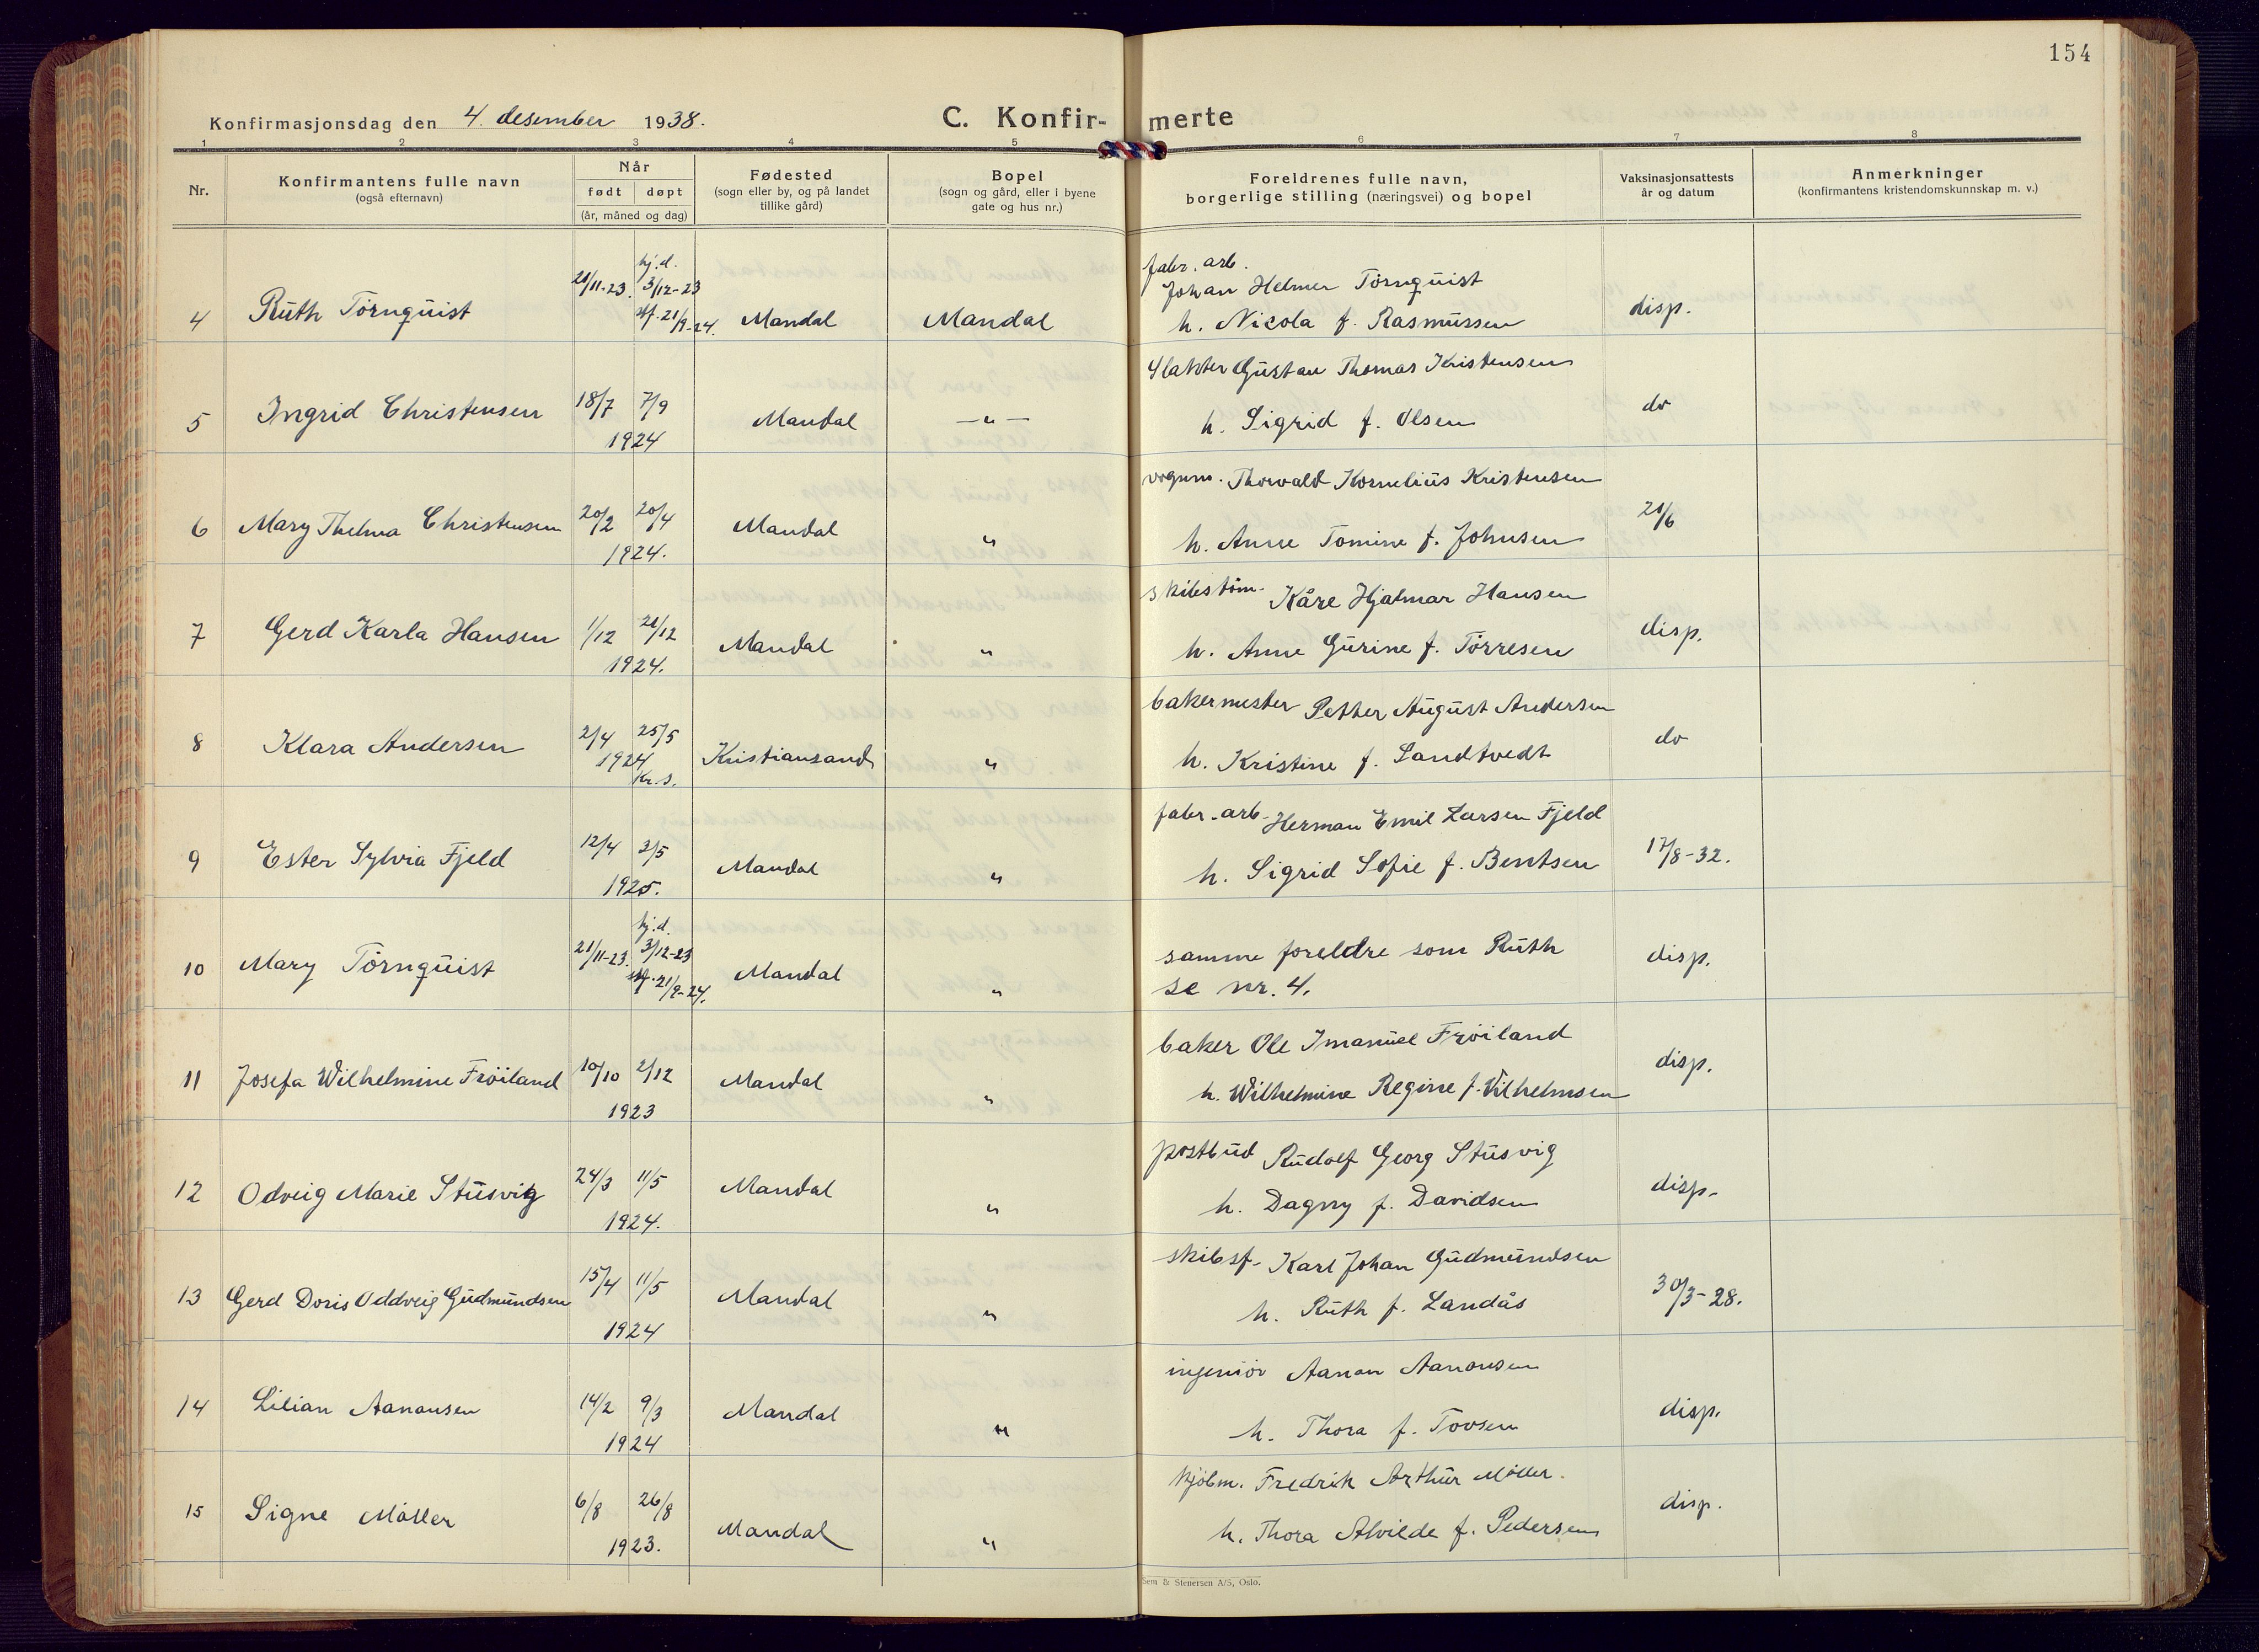 154
Konfirmasjonsdag den 4. desember 1938.
C. Konfir- merte
1 2 3 4 5 6 7 8
Nr.
Konfirmantens fulle navn
(også efternavn)
Når
født døpt
(år, måned og dag)
Fødested
(sogn eller by, og på landet
tillike gård)
Bopel
(sogn og gård, eller i byene
gate og hus nr.)
Foreldrenes fulle navn,
borgerlige stilling (næringsvei) og bopel
Vaksinasjonsattests
år og datum
Anmerkninger
(konfirmantens kristendomskunnskap m. v.)
hj. d.
21/11-23. 3/12-23
fabr. arb.
Johan Helmer Törnquist
4 Ruth Törnquist stf. 21/9-24. Mandal Mandal h. Nicola f. Rasmussen disp.
Slakter Gustav Thomas Kristensen
5 Ingrid Christensen 18/7 7/9 Mandal —"— h. Sigrid f. Olsen do
1924
vognm. Thorvald Kornelius Kristensen
6 Mary Thelma Christensen 20/2 20/4 Mandal " h. Anne Tomine f. Johnsen 21/6
1924.
skibstöm. Kåre Hjalmar Hansen
7 Gerd Karla Hansen 1/12 21/12 Mandal " h. Anne Gurine f. Törresen disp.
1924.
bakermester Petter August Andersen
8 Klara Andersen 2/4 25/5 Kristiansand " h. Kristine f. Sandtvedt do
1924
Kr. S.
fabr. arb. Herman Emil Larsen Fjeld
9 Ester Sylvia Fjeld 12/4 3/5 Mandal " h. Sigrid Sofie f. Bentsen 17/8-32.
1925.
hj. d.
21/11-23. 3/12-23
10 Mary Törnquist stf. 21/9-24. Mandal " samme foreldre som Ruth disp.
se nr. 4.
baker Ole Imanuel Fröiland
11 Josefa Wilhelmine Fröiland 10/10 2/12 Mandal " h. Wilhelmine Regine f. Vilhelmsen disp.
1923
postbud Rudolf Georg Stusvig
12 Odveig Marie Stusvig 24/3 11/5 Mandal " h. Dagny f. Davidsen disp.
1924.
skibsf. Karl Johan Gudmundsen
13 Gerd Doris Oddveig Gudmundsen 15/4 11/5 Mandal " h. Ruth f. Landås 30/3-28.
1924
ingeniör Aanon Aanonsen
14 Lilian Aanonsen 14/2 9/3 Mandal " h. Thora f. Tovsen disp.
1924
kjöbm. Fredrik Arthur Möller.
15 Signe Möller 6/8 26/8 Mandal " h. Thora Alvilde f. Pedersen disp.
1923.
Sem & Stenersen A/S, Oslo.